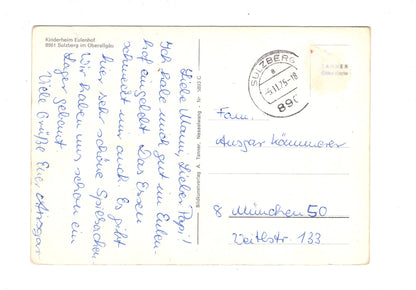 Kinderheim Eulenhof
8961 Sulzberg im Oberallgäu
Liebe Mami, Lieber Papi!
Ich habe mich gut im Eulen-
hof eingelebt. Das Essen
schmeckt mir auch. Es gibt
hier sehr schöne Spielsachen.
Wir haben uns schon ein
Lager gebaut.
Viele Grüße Euer Ansgar
SULZBERG
a
-5.11.75-18
896
Fam.
Ansgar Kämmerer
8 München 50
Veitlstr. 133